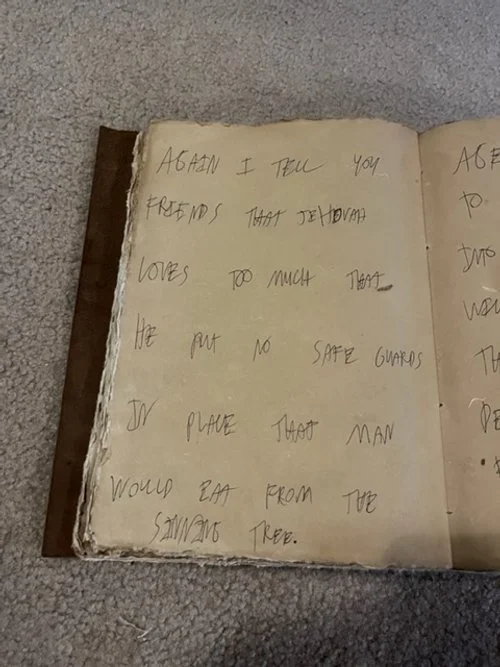 AGAIN I TELL YOU
FRIENDS THAT JEHOVAH
LOVES TOO MUCH THAT
HE PUT NO SAFE GUARDS
IN PLACE THAT MAN
WOULD EAT FROM THE
SINNING TREE.
TO
INTO